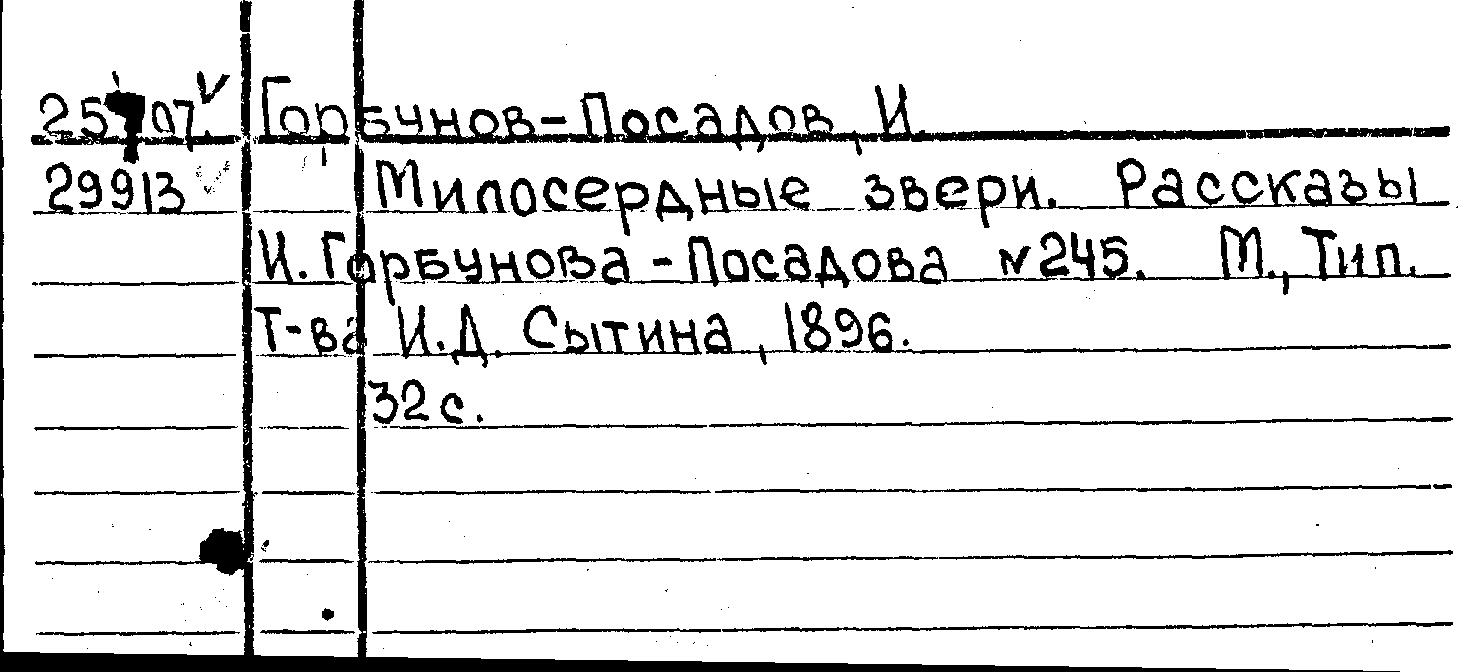 25707. V Горбунов-Посадов, И.
29913 V Милосердные звери. Рассказы
И. Горбунова-Посадова №245. М., Тип.
Т-ва И.Д. Сытина, 1896.
32 с.